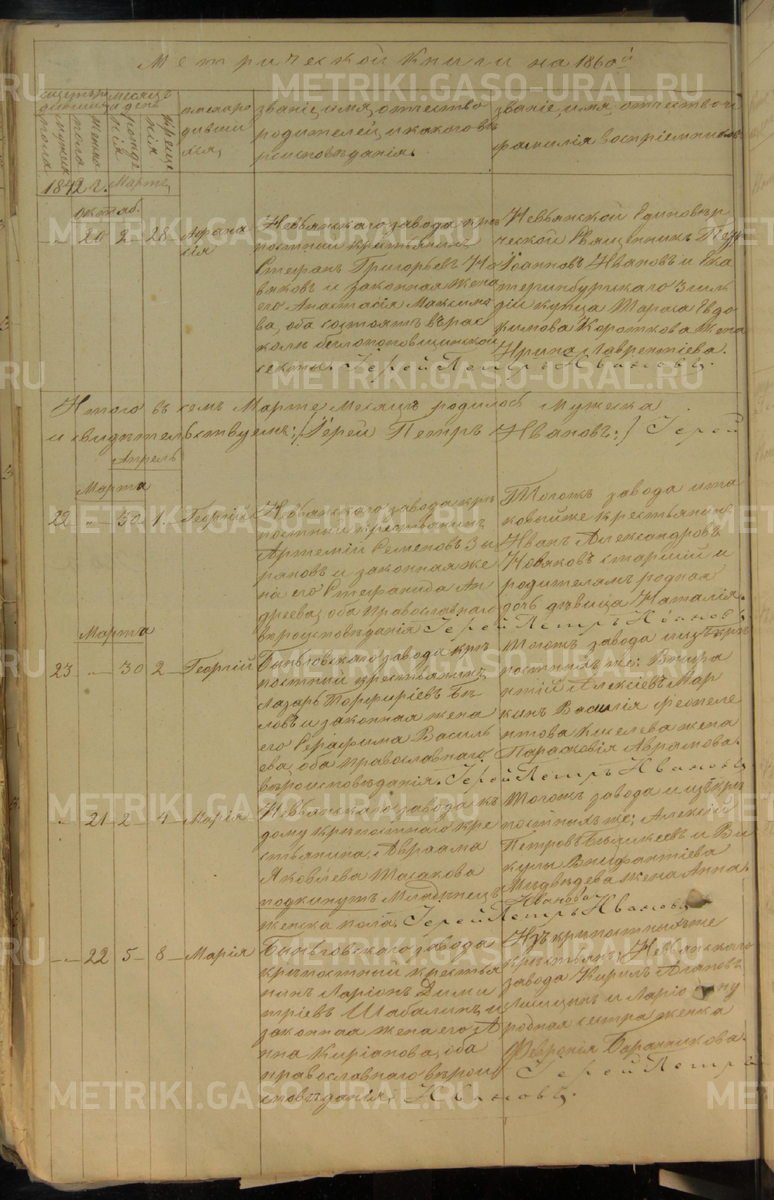 Метрической книги на 1860й
METRIKI.GASO-URAL.RU
счетъ родившихся
мужска пола
женска пола
месяцъ и день
рожденія
крещенія
имена родившихся,
званіе, имя, отчество родителей, и какого вероисповѣданія.
званіе, имя, отчество и фамилія воспріемниковъ.
1842 г. Марте,
октяб.
" 20 2 28 Афанасія
Невьянскаго завода крѣпостной крестьянинъ
Стефанъ Григорьевъ
и законная жена
его Анастасія Максимова, оба состоятъ въ расколѣ беспоповщинской
секты. Іерей Петръ Ивановъ.
Невьянской Единоверческой Священникъ Петръ
Іоанновъ Ивановъ и Екатеринбургскаго 3 гильдіи купца Тараса Евдокимова Короткова жена
Ирина Лаврентіева.
Итого въ семъ Марте месяцѣ родилось мужска
и свидѣтельствуемъ: /Іерей Петръ Ивановъ:/ Іерей
Апрель
Марта
22 " 30 1 Георгій
Невьянскаго завода крѣпостный крестьянинъ
Артемій Семеновъ Зыряновъ и законная жена его Стефанида Андреева, оба православнаго
вѣроисповѣданія. Іерей Петръ Ивановъ.
Тогожъ завода и таковыйже крестьянинъ
Иванъ Александровъ
Новяковъ старшій и
родителямъ родная
дочь дѣвица Наталія.
Марта
23 — 30 2 Георгій
Быньговскаго завода крѣпостный крестьянинъ
Лазарь Порфиріевъ Бѣловъ и законная жена
его Серафима Васильева, оба православнаго
вѣроисповѣданія. Іерей Петръ Ивановъ.
Тогожъ завода и изъ крѣпостныхъ же:
Алексіевъ Маркинъ Василія
Киселева жена
Парасковія Аврамова.
" 21 2 4 Марія
Невьянскаго завода къ
дому крѣпостнаго крестьянина, Авраама
Яковлева
подкинутъ Младенецъ
женска пола. Іерей Петръ Ивановъ.
Тогожъ завода и изъ крѣпостныхъ же; Алексій
Петровъ и Викулы
Медведева жена Анна
Иванова
— 22 5 8 Марія
Быньговскаго завода
крѣпостный крестьянинъ Ларіонъ Димитріевъ Шабалинъ, и
законная жена его Анна Киріанова, оба
православнаго вѣроисповѣданія. Ивановъ.
Изъ крѣпостныхъ же
крестьянъ Невьянскаго
завода Кирилъ
и Ларіону
родная сестра женка
Февронія Баранникова.
Іерей Петръ